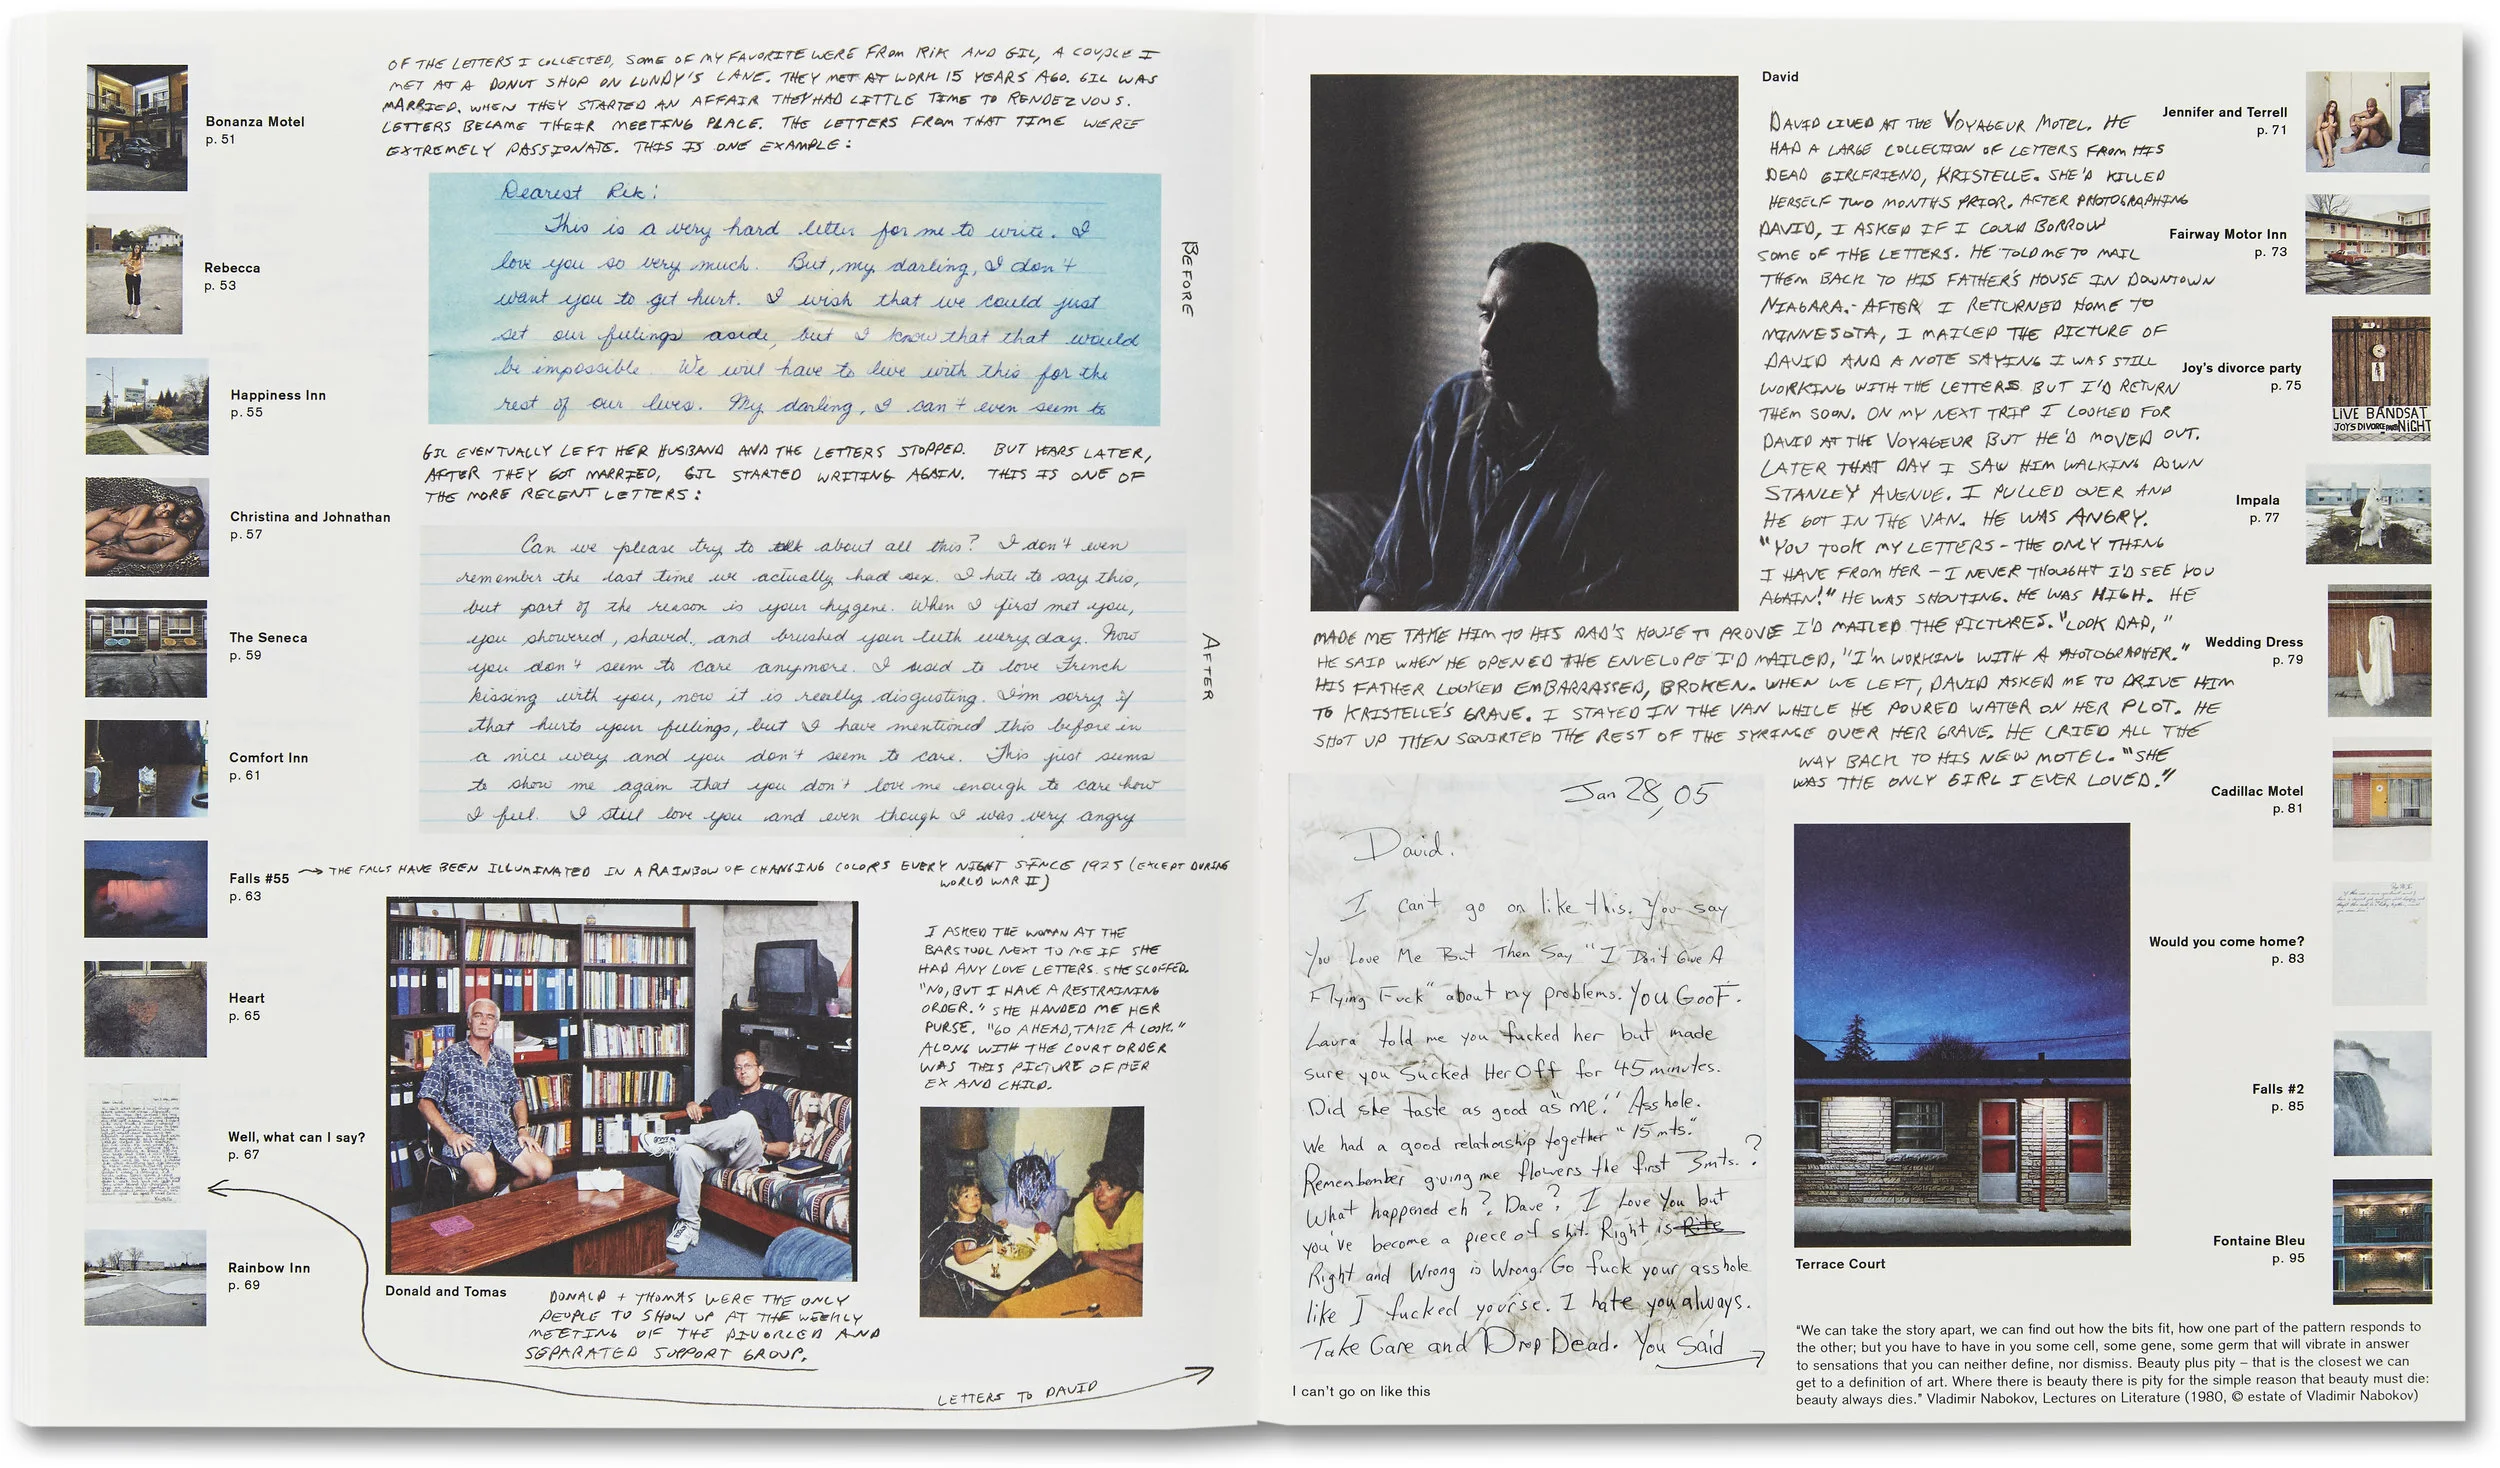 Bonanza Motel
p. 51
Rebecca
p. 53
Happiness Inn
p. 55
Christina and Johnathan
p. 57
The Seneca
p. 59
Comfort Inn
p. 61
Falls #55
p. 63
Heart
p. 65
Well, what can I say?
p. 67
Rainbow Inn
p. 69
OF THE LETTERS I COLLECTED, SOME OF MY FAVORITE WERE FROM RIK AND GIL, A COUPLE I
MET AT A DONUT SHOP ON LUNDY'S LANE. THEY MET AT WORK 15 YEARS AGO. GIL WAS
MARRIED. WHEN THEY STARTED AN AFFAIR THEY HAD LITTLE TIME TO RENDEZVOUS.
LETTERS BECAME THEIR MEETING PLACE. THE LETTERS FROM THAT TIME WERE
EXTREMELY PASSIONATE. THIS IS ONE EXAMPLE:
Dearest Rik:
This is a very hard letter for me to write. I
love you so very much. But, my darling, I don't
want you to get hurt. I wish that we could just
set our feelings aside, but I know that that would
be impossible. We will have to live with this for the
rest of our lives. My darling, I can't even seem to
BEFORE
GIL EVENTUALLY LEFT HER HUSBAND AND THE LETTERS STOPPED. BUT YEARS LATER,
AFTER THEY GOT MARRIED, GIL STARTED WRITING AGAIN. THIS IS ONE OF
THE MORE RECENT LETTERS:
Can we please try to talk about all this? I don't even
remember the last time we actually had sex. I hate to say this,
but part of the reason is your hygene. When I first met you,
you showered, shaved, and brushed your teeth every day. Now
you don't seem to care anymore. I used to love French
kissing with you, now it is really disgusting. I'm sorry if
that hurts your feelings, but I have mentioned this before in
a nice way and you don't seem to care. This just seems
to show me again that you don't love me enough to care how
I feel. I still love you and even though I was very angry
AFTER
THE FALLS HAVE BEEN ILLUMINATED IN A RAINBOW OF CHANGING COLORS EVERY NIGHT SINCE 1925 (EXCEPT DURING
WORLD WAR II)
I ASKED THE WOMAN AT THE
BARSTOOL NEXT TO ME IF SHE
HAD ANY LOVE LETTERS. SHE SCOFFED.
"NO, BUT I HAVE A RESTRAINING
ORDER." SHE HANDED ME HER
PURSE. "GO AHEAD, TAKE A LOOK."
ALONG WITH THE COURT ORDER
WAS THIS PICTURE OF HER
EX AND CHILD.
Donald and Tomas
DONALD + THOMAS WERE THE ONLY
PEOPLE TO SHOW UP AT THE WEEKLY
MEETING OF THE DIVORCED AND
SEPARATED SUPPORT GROUP.
LETTERS TO DAVID
David
DAVID LIVED AT THE VOYAGEUR MOTEL. HE
HAD A LARGE COLLECTION OF LETTERS FROM HIS
DEAD GIRLFRIEND, KRISTELLE. SHE'D KILLED
HERSELF TWO MONTHS PRIOR. AFTER PHOTOGRAPHING
DAVID, I ASKED IF I COULD BORROW
SOME OF THE LETTERS. HE TOLD ME TO MAIL
THEM BACK TO HIS FATHER'S HOUSE IN DOWNTOWN
NIAGARA. AFTER I RETURNED HOME TO
MINNESOTA, I MAILED THE PICTURE OF
DAVID AND A NOTE SAYING I WAS STILL
WORKING WITH THE LETTERS BUT I'D RETURN
THEM SOON. ON MY NEXT TRIP I LOOKED FOR
DAVID AT THE VOYAGEUR BUT HE'D MOVED OUT.
LATER THAT DAY I SAW HIM WALKING DOWN
STANLEY AVENUE. I PULLED OVER AND
HE GOT IN THE VAN. HE WAS ANGRY.
"YOU TOOK MY LETTERS - THE ONLY THING
I HAVE FROM HER - I NEVER THOUGHT I'D SEE YOU
AGAIN!" HE WAS SHOUTING. HE WAS HIGH. HE
MADE ME TAKE HIM TO HIS DAD'S HOUSE TO PROVE I'D MAILED THE PICTURES. "LOOK DAD,"
HE SAID WHEN HE OPENED THE ENVELOPE I'D MAILED, "I'M WORKING WITH A PHOTOGRAPHER."
HIS FATHER LOOKED EMBARRASSED, BROKEN. WHEN WE LEFT, DAVID ASKED ME TO DRIVE HIM
TO KRISTELLE'S GRAVE. I STAYED IN THE VAN WHILE HE POURED WATER ON HER PLOT. HE
SHOT UP THEN SQUIRTED THE REST OF THE SYRINGE OVER HER GRAVE. HE CRIED ALL THE
WAY BACK TO HIS NEW MOTEL. "SHE
WAS THE ONLY GIRL I EVER LOVED."
Jan 28, 05
David.
I can't go on like this. You say
You Love Me But Then Say "I Don't Give A
Flying Fuck" about my problems. You Goof.
Laura told me you fucked her but made
sure you Sucked Her Off for 45 minutes.
Did she taste as good as "me!" Asshole.
We had a good relationship together "15 mts."
Remember giving me flowers the first 3mts.?
What happened eh? Dave? I Love You but
you've become a piece of shit. Right is Rite
Right and Wrong is Wrong. Go fuck your asshole
like I fucked yours'e. I hate you always.
Take Care and Drop Dead. You Said
I can't go on like this
Terrace Court
"We can take the story apart, we can find out how the bits fit, how one part of the pattern responds to
the other; but you have to have in you some cell, some gene, some germ that will vibrate in answer
to sensations that you can neither define, nor dismiss. Beauty plus pity – that is the closest we can
get to a definition of art. Where there is beauty there is pity for the simple reason that beauty must die:
beauty always dies." Vladimir Nabokov, Lectures on Literature (1980, © estate of Vladimir Nabokov)
Jennifer and Terrell
p. 71
Fairway Motor Inn
p. 73
Joy's divorce party
p. 75
LIVE BANDSAT
JOYS DIVORCE NIGHT
Impala
p. 77
Wedding Dress
p. 79
Cadillac Motel
p. 81
Would you come home?
p. 83
Falls #2
p. 85
Fontaine Bleu
p. 95